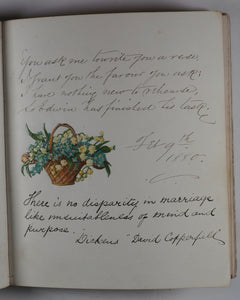 You ask me to write you a verse,
I grant you the favour you ask;
I have nothing new to rehearse,
So Edwin has finished his task.
Feb 9th
1880.
There is no disparity in marriage
like unsuitableness of mind and
purpose.
Dickens David Copperfield